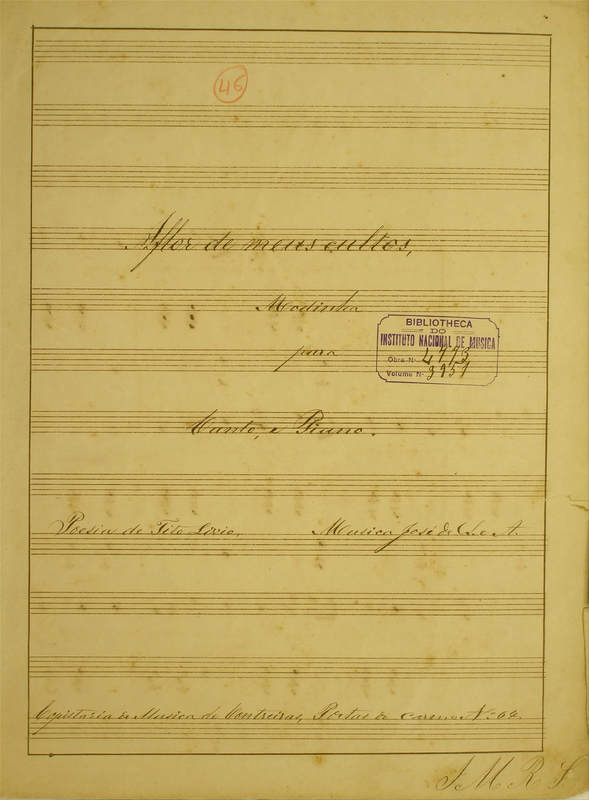 46
A flor de meus cultos,
Modinha
para
Canto, e Piano.
BIBLIOTHECA
DO
INSTITUTO NACIONAL DE MUSICA
Obra N.
Volume N.
Poesia de Tito Livio. Musica José de
Copistaria de Musica de Contreiras, Portas do Carmo Nº
J M R S